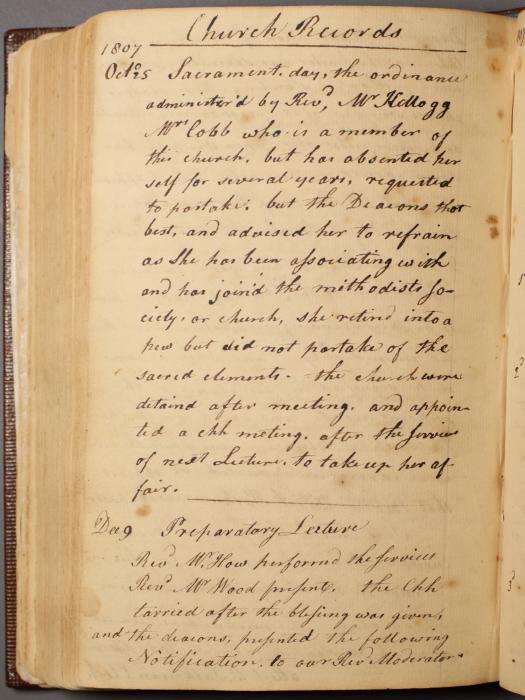 Church Records
1807
Octr 25 Sacrament. day, the ordinance
administer'd by Revd, Mr Kellogg
Mrs Cobb who is a member of
this church, but has absented her
self for several years, requested
to partake. but the Deacons thot
best, and advised her to refrain
as She has been associating with
and has join'd the methodists so-
ciety, or church, she retired into a
pew but did not partake of the
sacred elements - the church were
detaind after meeting. and appoin-
ted a chh meting. after the service
of next Lecture. to take up her af
fair.
Dec 9 Preparatory Lecture
Revd Mr How performd the services
Revd Mr Wood present. the Chh
tarried after the blessing was given,
and the deacons, presented the following
Notification. to our Revd Moderator